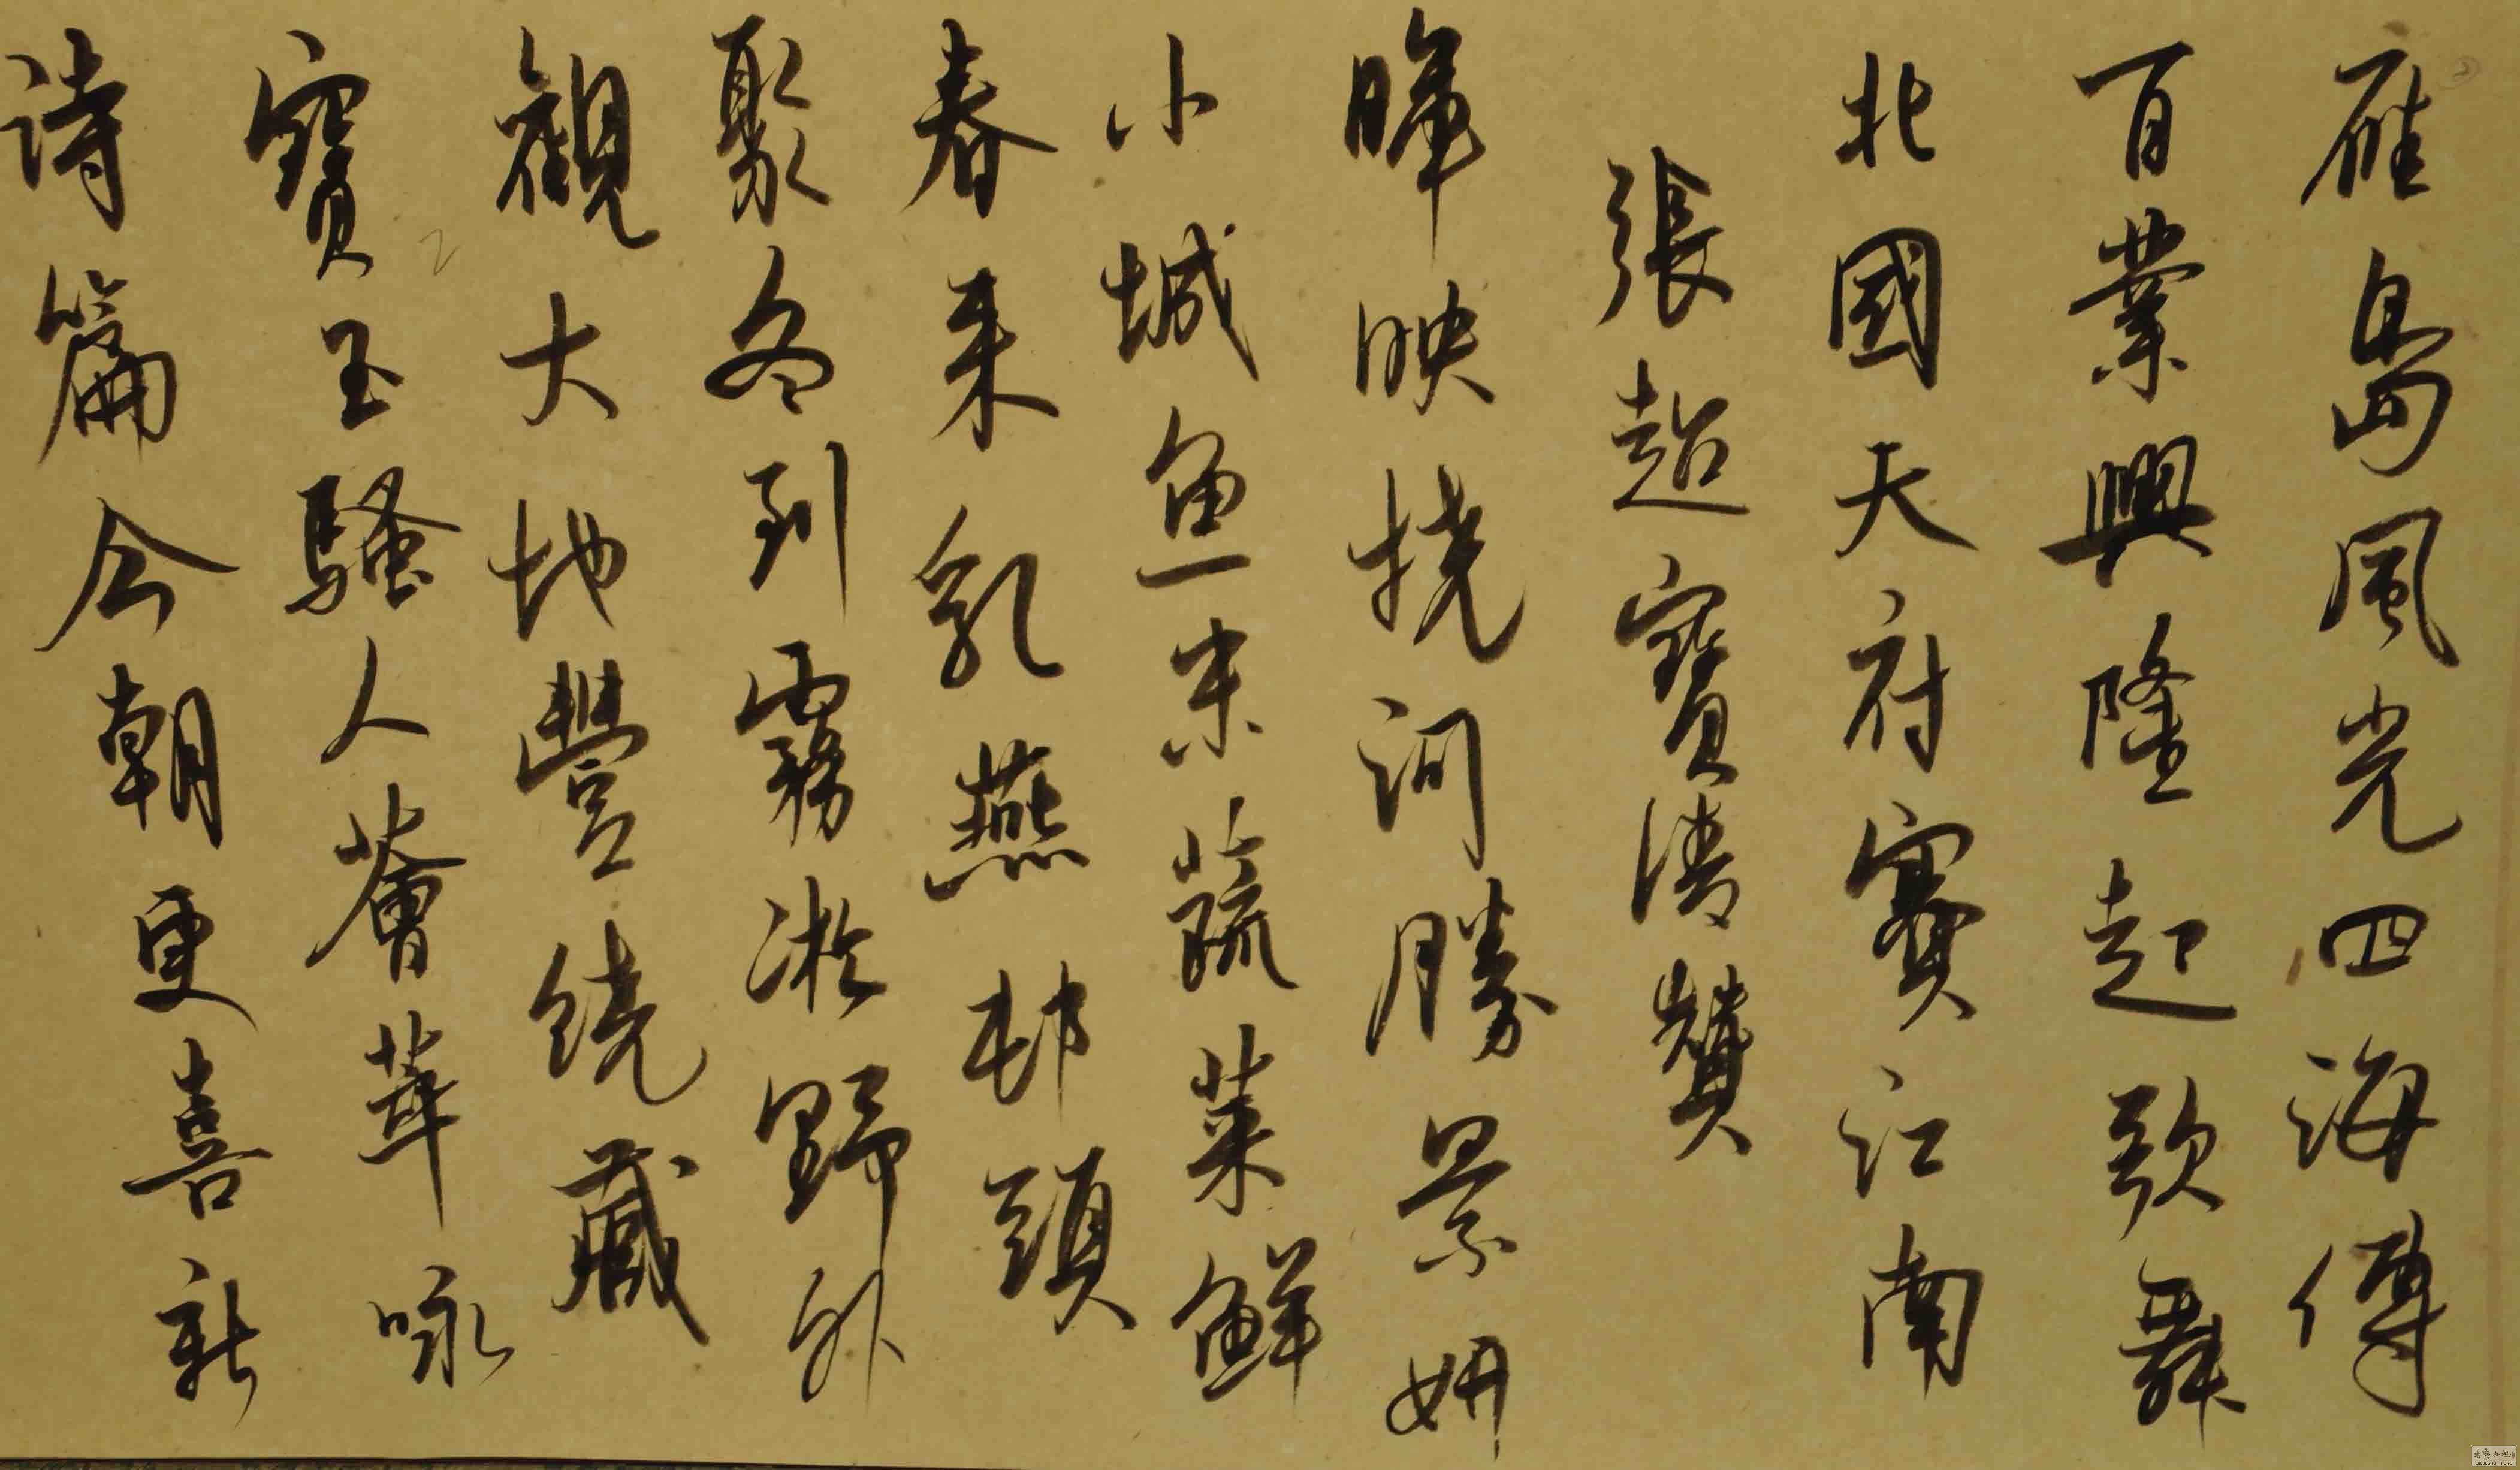 雁島風光四海傳
百業興隆起歌舞
北國天府賽江南
張超寶清贊
暉映撓河勝景妍
小城魚米蔬菜鮮
春来乳燕邨頭
聚冬到霧凇野外
觀大地豐饒藏
寶玉騷人薈萃咏
詩篇今朝更喜新